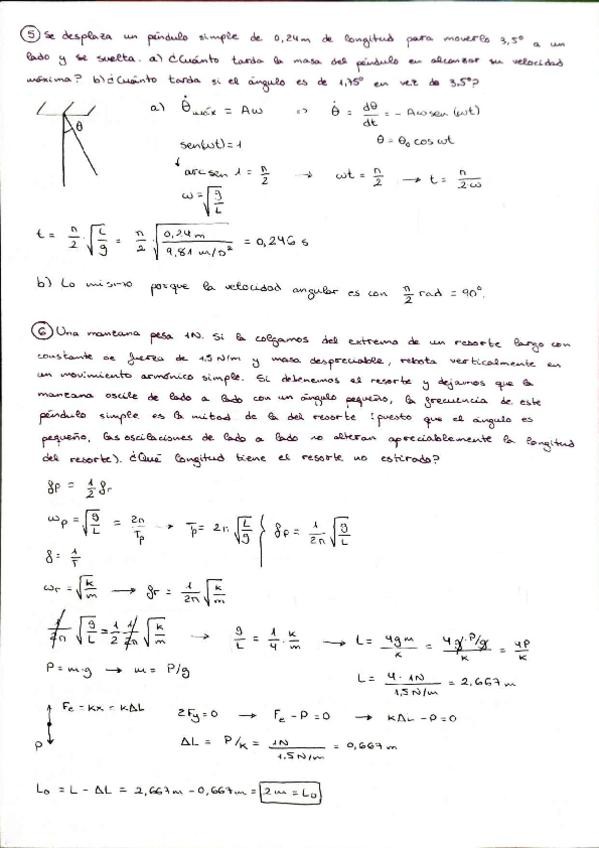 ⑤ Se desplaza un péndulo simple de 0,24m de longitud para moverlo 3,5° a un
lado y se suelta. a) ¿Cuánto tarda la masa del péndulo en alcanzar su velocidad
máxima? b) ¿Cuánto tarda si el ángulo es de 1,75° en vez de 3,5°?
θ
a) θ̇máx = Aω => θ̇ = dθ/dt = - Aω sen(ωt)
θ = θ₀ cos ωt
sen(ωt) = 1
↓
arc sen 1 = π/2 → ωt = π/2 → t = π/2ω
ω = √(g/L)
t = π/2 · √(L/g) = π/2 √(0,24m / 9,81 m/s²) = 0,246 s
b) Lo mismo porque la velocidad angular es con π/2 rad = 90°.
⑥ Una manzana pesa 1N. Si la colgamos del extremo de un resorte largo con
constante de fuerza de 1.5 N/m y masa despreciable, rebota verticalmente en
un movimiento armónico simple. Si detenemos el resorte y dejamos que la
manzana oscile de lado a lado con un ángulo pequeño, la frecuencia de este
péndulo simple es la mitad de la del resorte (puesto que el ángulo es
pequeño, las oscilaciones de lado a lado no alteran apreciablemente la longitud
del resorte). ¿Qué longitud tiene el resorte no estirado?
fp = 1/2 fr
ωp = √(g/L) = 2π/Tp → Tp = 2π √(L/g) } fp = 1/2π √(g/L)
f = 1/T
ωr = √(k/m) → fr = 1/2π √(k/m)
1/2π √(g/L) = 1/2 1/2π √(k/m) → g/L = 1/4 · k/m → L = 4gm/k = 4g·P/g/k = 4P/k
P = m·g → m = P/g
L = 4 · 1N / 1,5N/m = 2,667m
Fe = kx = kΔL
P
ΣFy = 0 → Fe - P = 0 → kΔL - P = 0
ΔL = P/k = 1N / 1.5N/m = 0,667m
L₀ = L - ΔL = 2,667m - 0,667m = 2m = L₀